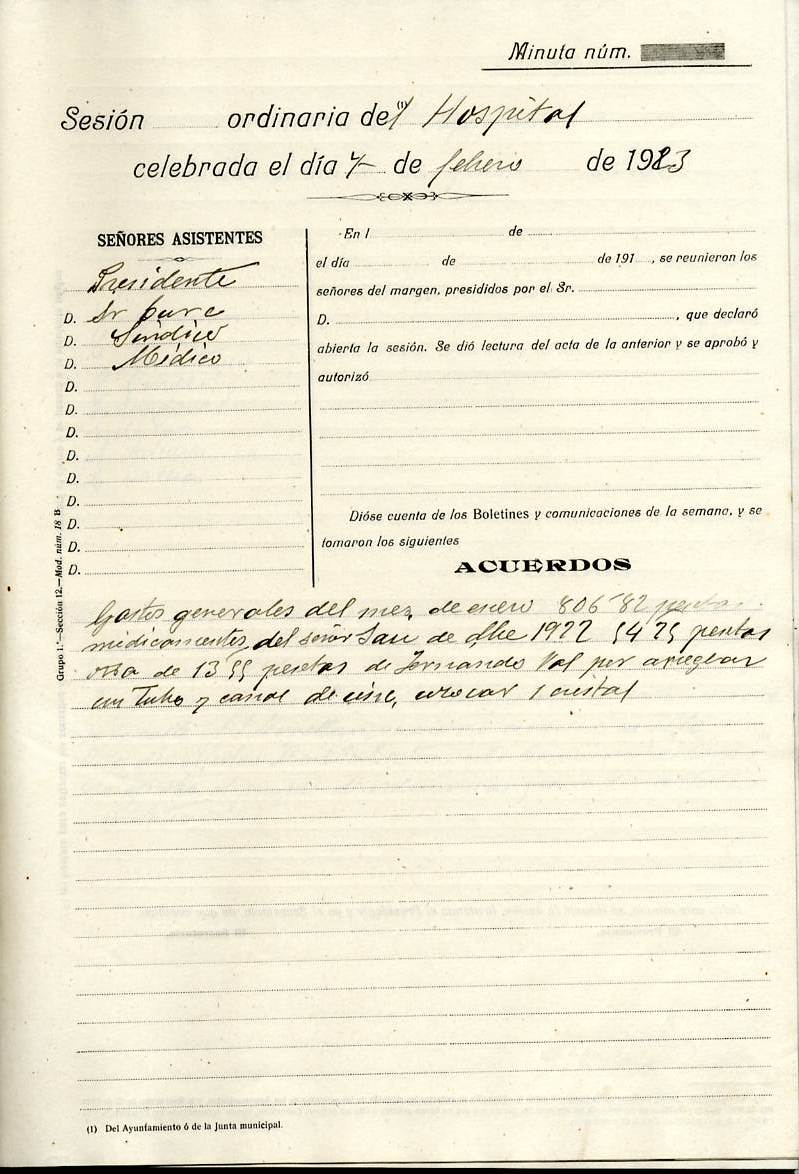 Minuta núm.
Sesión ordinaria del (1) Hospital
celebrada el día 7 de febrero de 1923
SEÑORES ASISTENTES
Presidente
D. Sr Cura
D. Síndico
D. Médico
D.
D.
D.
D.
D.
D.
D.
D.
D.
Grupo 1.º—Sección 12.—Mod. núm. 18 B
En l de
el día de de 191 , se reunieron los
señores del margen, presididos por el Sr.
D. , que declaró
abierta la sesión. Se dió lectura del acta de la anterior y se aprobó y
autorizó
Dióse cuenta de los Boletines y comunicaciones de la semana, y se
tomaron los siguientes
ACUERDOS
Gastos generales del mez de enero 806'82 pesetas
medicamentos del señor de 1922 54 75 pesetas
otra de 13 55 pesetas de Fernando Val por arreglar
un tubo y canal de cinc, colocar 1 cristal
(1) Del Ayuntamiento ó de la Junta municipal.